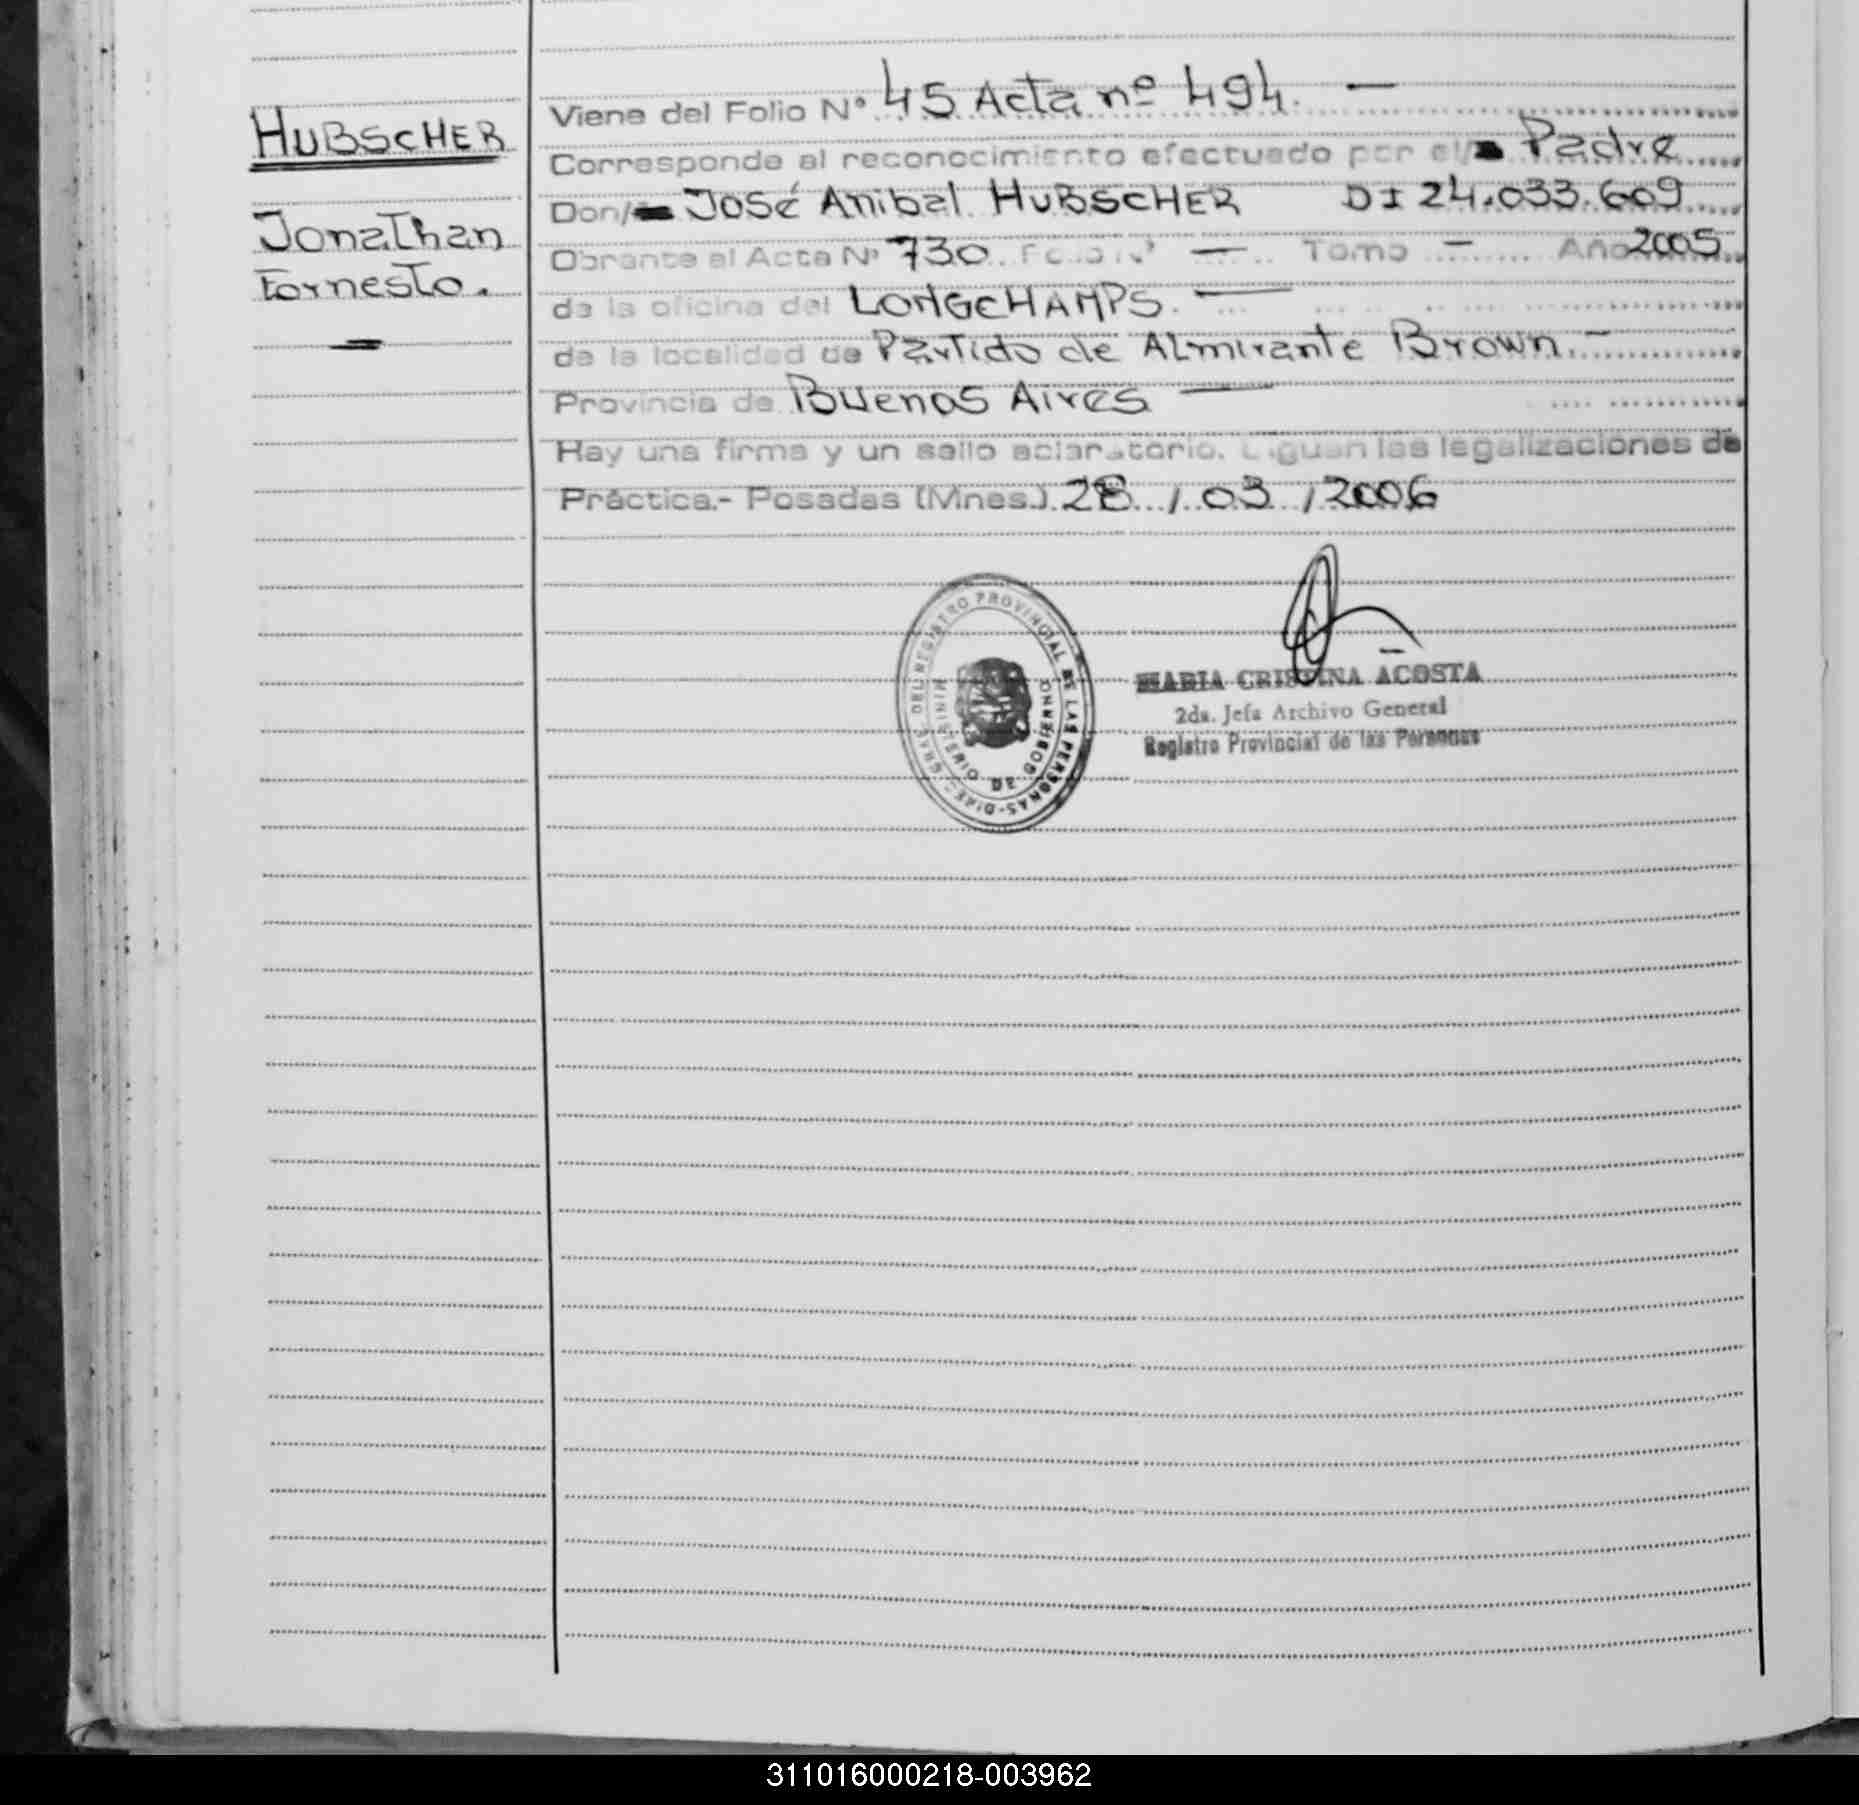 HUBSCHER
Jonathan
Eornesto.
Viene del Folio Nº 45 Acta nº 494. —
Corresponde al reconocimiento efectuado por el/ Padre
Don/ José Anibal HUBSCHER DI 24.033.609
Obrante al Acta Nº 730 Folio Nº — Tomo — Año 2005
de la oficina del LONGCHAMPS. —
de la localidad de Partido de Almirante Brown. —
Provincia de Buenos Aires —
Hay una firma y un sello aclaratorio. Siguen las legalizaciones de
Práctica.- Posadas (Mnes.) 28 / 03 / 2006
DEL REGISTRO PROVINCIAL DE LAS PERSONAS-DIREC. GRAL.
MINISTERIO DE GOBIERNO
MARIA CRISTINA ACOSTA
2da. Jefa Archivo General
Registro Provincial de las Personas
311016000218-003962